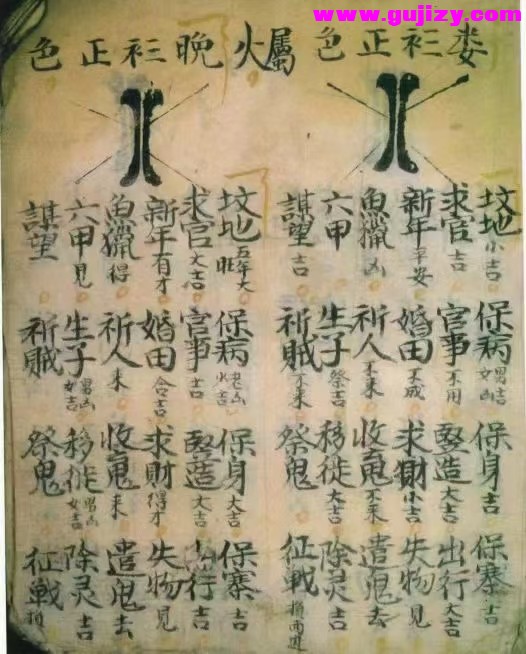 www.gujizy.com
娄衫正色
坟地小吉 保病男吉女凶 保身吉 保寨吉
求官吉 官事不用 竪造大吉 出行大吉
新年平安 婚田不成 求財小吉 失物見
魚獵凶 祈人不来 收不来 遣鬼去
六甲 生子祭吉 移徙大吉 除灵吉
謀望吉 祈賊不来 祭鬼 征戦損両
屬火晚衫正色
坟地五年大旺 保病老凶吉 保身大吉 保寨吉
求官大吉 官事吉 竪造大吉 行吉
新年有才 婚田合吉 求財得才 失物見
魚獵得 祈人来 收来 遣鬼去
六甲見 生子男凶女吉 移徙男凶女吉 除灵吉
謀望 祈賊 祭鬼 征戦損